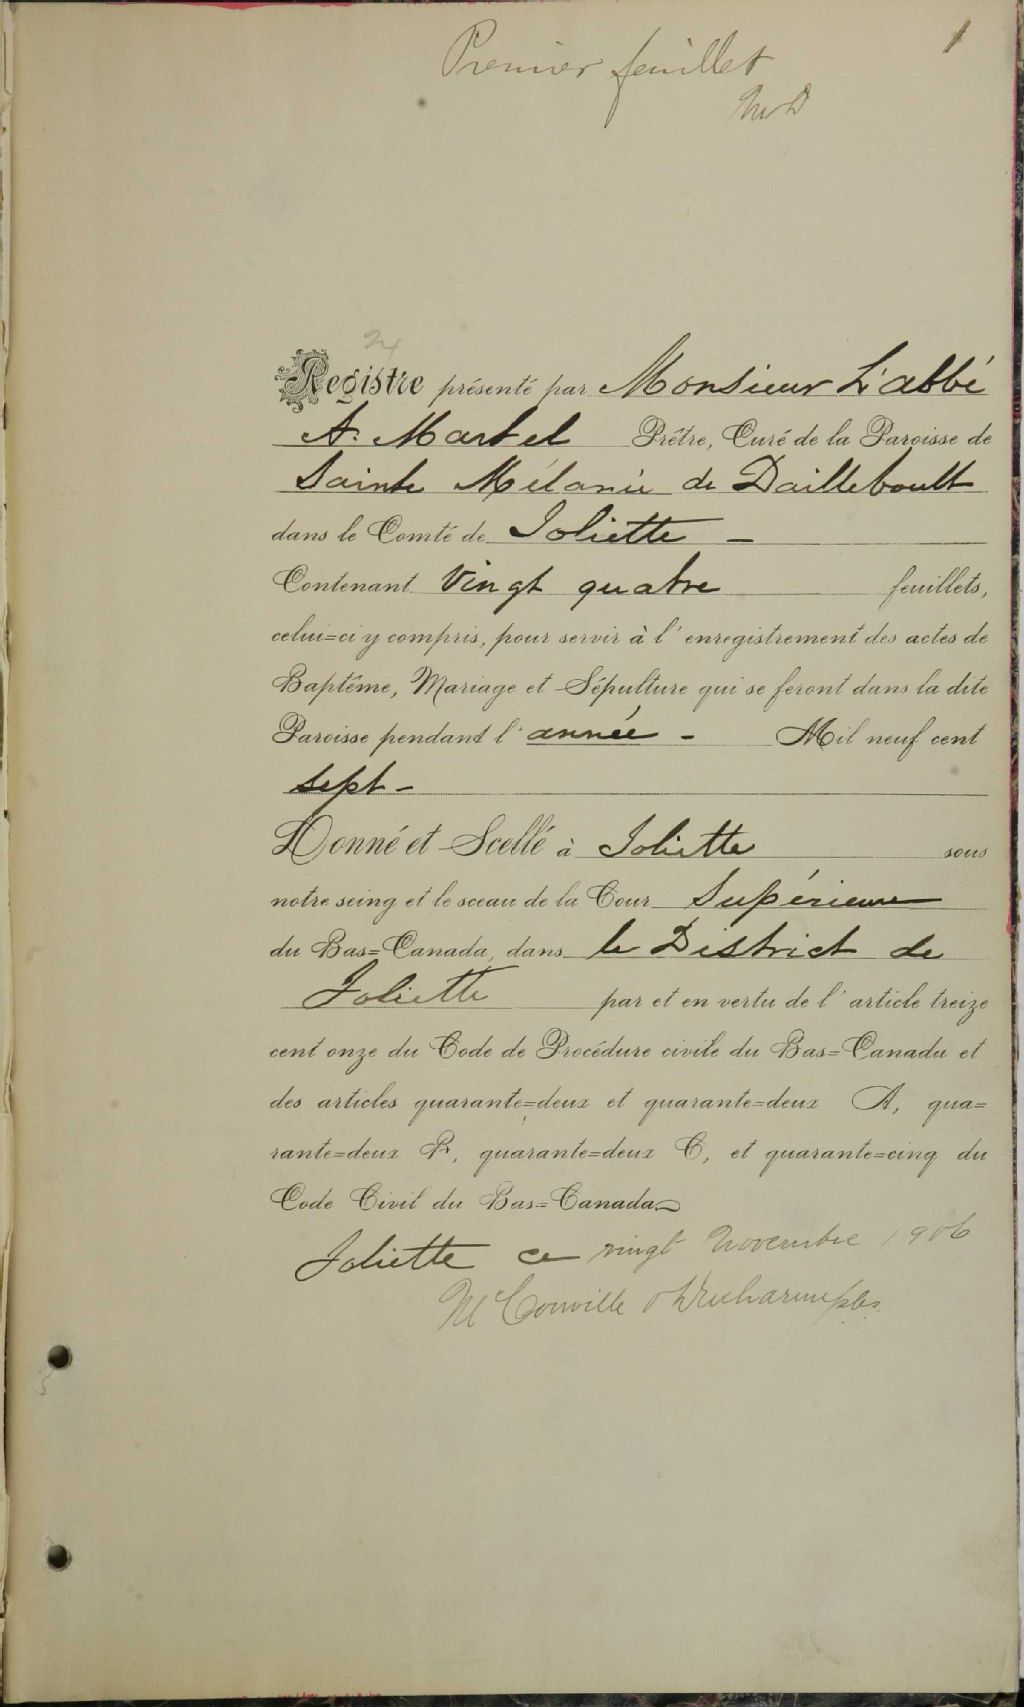 1
Premier feuillet
McD
24
Registre présenté par Monsieur L'abbé
A. Martel Prêtre, Curé de la Paroisse de
Sainte Mélanie de Dailleboult
dans le Comté de Joliette —
Contenant Vingt quatre feuillets,
celui=ci y compris, pour servir à l'enregistrement des actes de
Baptême, Mariage et Sépulture qui se feront dans la dite
Paroisse pendant l'année - Mil neuf cent
sept -
Donné et Scellé à Joliette sous
notre seing et le sceau de la Cour Supérieure
du Bas=Canada, dans le District de
Joliette par et en vertu de l'article treize
cent onze du Code de Procédure civile du Bas=Canada et
des articles quarante=deux et quarante=deux A, qua=
rante=deux B, quarante=deux C, et quarante=cinq du
Code Civil du Bas=Canada
Joliette ce vingt Novembre 1906
McConville &